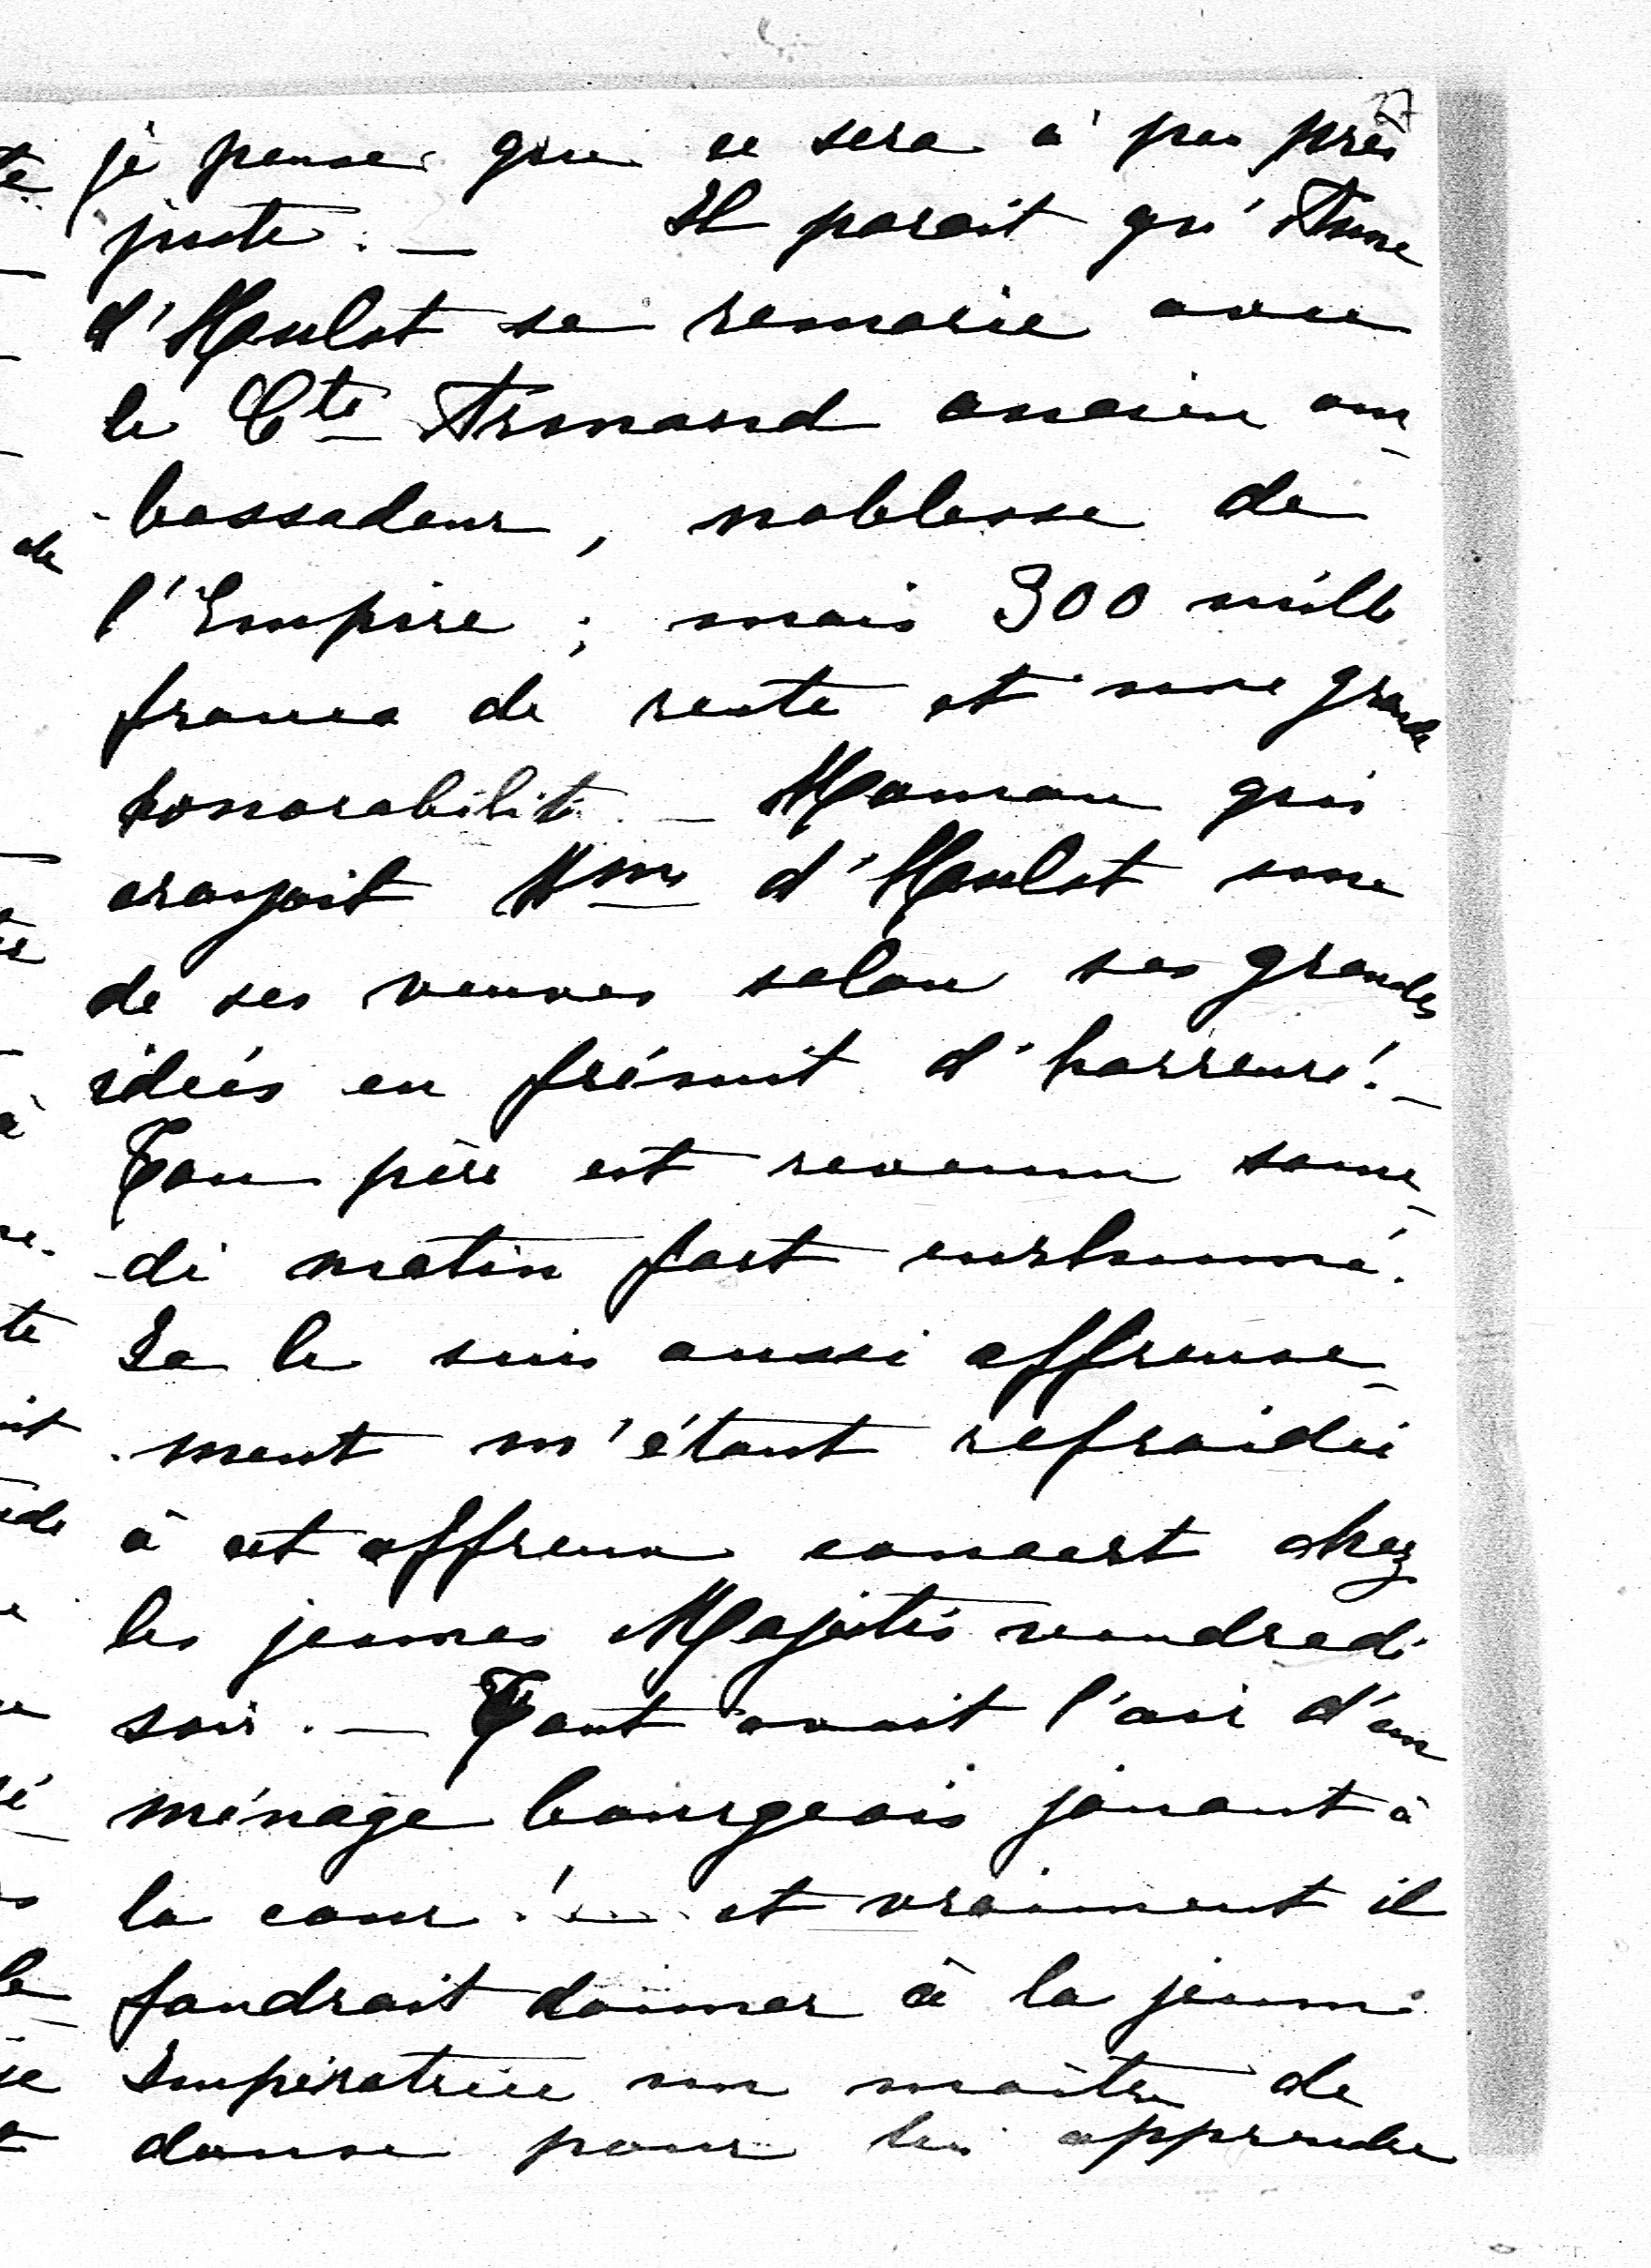 37
je pense que ce sera à peu près
juste. — Il parait qu'Anne
d'Hanlot se remarie avec
le Cte Armand ancien am-
-bassadeur, noblesse de
l'Empire ; mais 300 mille
francs de rente et une grande
honorabilité — Maman qui
croyait Mme d'Hanlot une
de ses veuves selon ses grandes
idées en frémit d'horreur! —
Ton père est revenu same-
-di matin fort enrhumé.
Je le suis aussi affreuse-
-ment m'étant refroidie
à cet affreux concert chez
les jeunes Majestés vendredi
soir. — Tout avait l'air d'un
ménage bourgeois jouant à
la cour! ... et vraiment il
faudrait donner à la jeune
Impératrice un maître de
danse pour lui apprendre